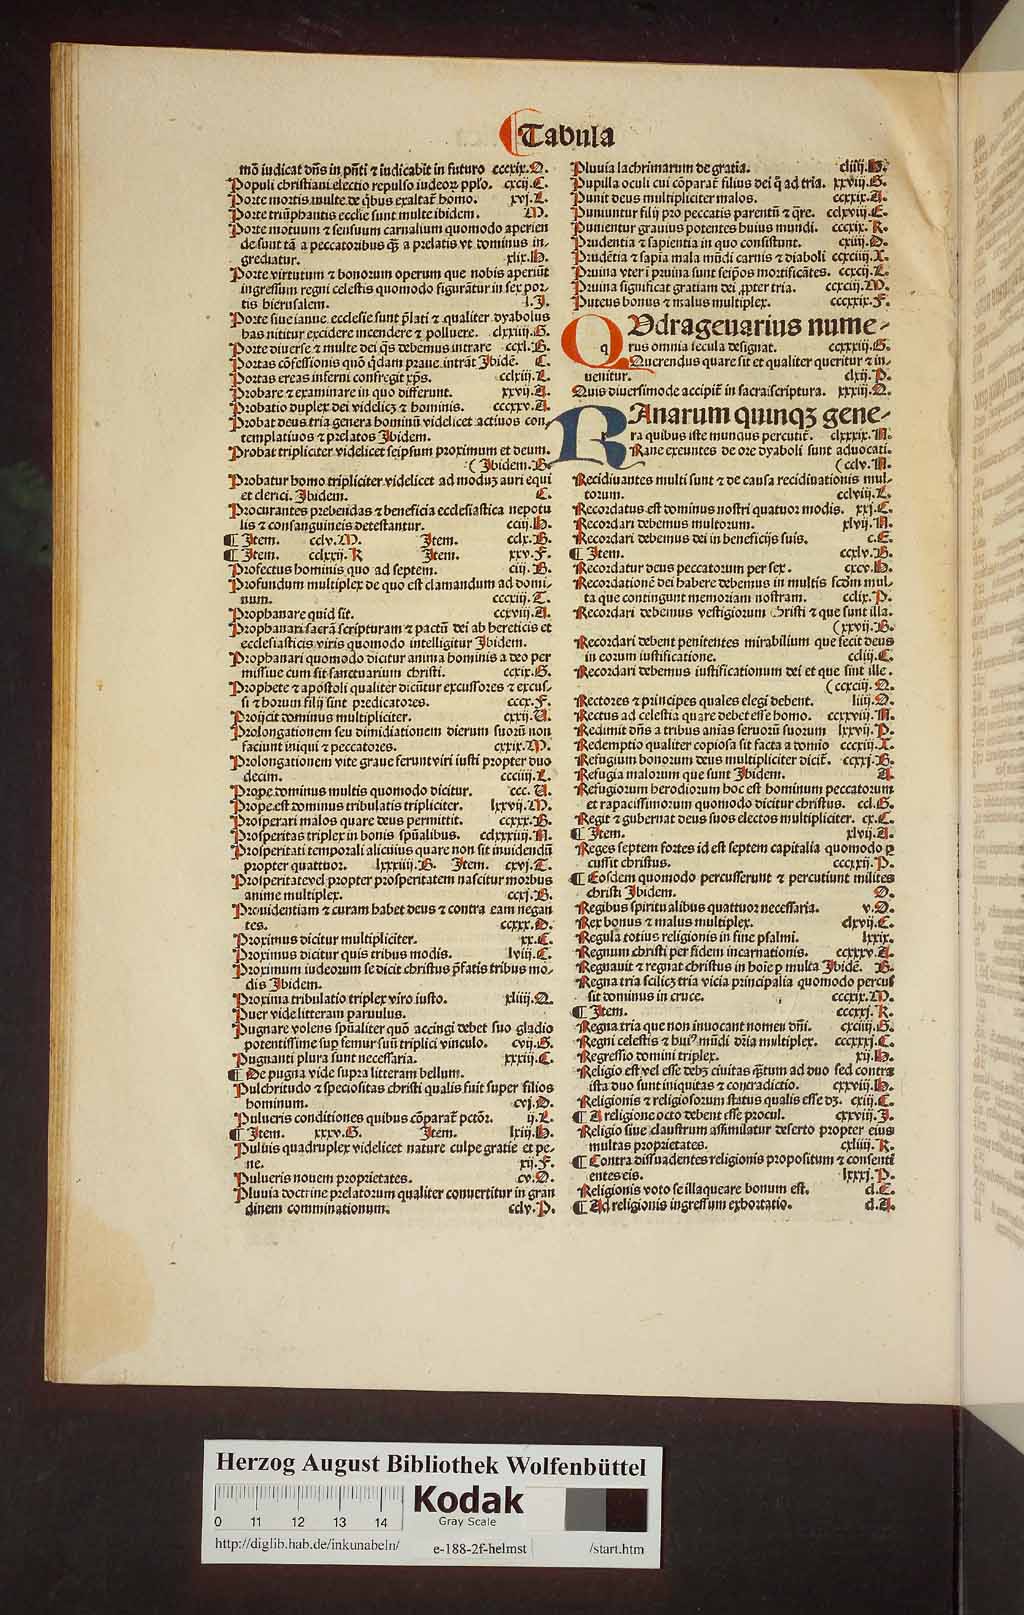 Tabula
mō iudicat dn̄s in pn̄ti ⁊ iudicabit in futuro cccxix.O.
Populi christiani electio repulso iudeoꝝ pplo. cxcij.C.
Porte mortis multe de q̄bus exaltat̄ homo. xvj.L.
Porte triūphantis ecclie sunt multe ibidem. M.
Porte motuum ⁊ sensuum carnalium quomodo aperien
de sunt tā a peccatoribus q̄ꝫ a prelatis vt dominus in-
grediatur. xlix.H.
Porte virtutum ⁊ bonorum operum que nobis aperiūt
ingressum regni celestis quomodo figurātur in sex por-
tis hierusalem. l.J.
Porte siue ianue ecclesie sunt p̄lati ⁊ qualiter dyabolus
has nititur excidere incendere ⁊ polluere. clxxiij.G.
Porte diuerse ⁊ multe dei q̄s debemus intrare ccxl.B.
Portas cōfessionis quō q̄dam praue intrāt Ibidē. C.
Portas ereas inferni confregit xp̄s. cclxiij.L.
Probare ⁊ examinare in quo differunt. xxvij.A.
Probatio duplex dei videlicꝫ ⁊ hominis. ccccxv.A.
Probat deus tria genera hominū videlicet actiuos con
templatiuos ⁊ prelatos Ibidem.
Probat tripliciter videlicet seipsum proximum et deum.
( Ibidem.B.
Probatur homo tripliciter videlicet ad moduꝫ auri equi
et clerici. Ibidem. C.
Procurantes prebendas ⁊ beneficia ecclesiastica nepotu
lis ⁊ consanguineis detestantur. cciij.H.
¶ Item. cclv.M. Item. cclx.B.
¶ Item. cclxxij.K Item. xxv.F.
Profectus hominis quo ad septem. ciij.B.
Profundum multiplex de quo est clamandum ad domi-
num. cccciij.T.
Prophanare quid sit. ccxviij.A.
Prophanari sacrā scripturam ⁊ pactū dei ab hereticis et
ecclesiasticis viris quomodo intelligitur Ibidem.
Prophanari quomodo dicitur anima hominis a deo per
missiue cum sit sanctuarium christi. ccxix.G.
Prophete ⁊ apostoli qualiter dicūtur excussores ⁊ excus-
si ⁊ horum filij sint predicatores. cccx.F.
Proijcit dominus multipliciter. cxxij.U.
Prolongationem seu dimidiationem dierum suorū non
faciunt iniqui ⁊ peccatores. cxxix.M.
Prolongationem vite graue ferunt viri iusti propter duo
decim. ccciiij.L.
Prope dominus multis quomodo dicitur. ccc.U.
Prope est dominus tribulatis tripliciter. lxxvij.M.
Prosperari malos quare deus permittit. ccxxx.B.
Prosperitas triplex in bonis spūalibus. cclxxxiiij.N.
Prosperitati temporali alicuius quare non sit inuidendū
propter quattuor. lxxxiiij.B. Item. cxvj.T.
Prosperitate vel propter prosperitatem nascitur morbus
anime multiplex. ccxj.B.
Prouidentiam ⁊ curam habet deus ⁊ contra eam negan
tes. ccxxx.D.
Proximus dicitur multipliciter. xx.C.
Proximus dicitur quis tribus modis. lviij.C.
Proximum iudeorum se dicit christus p̄fatis tribus mo-
dis Ibidem.
Proxima tribulatio triplex viro iusto. xliiij.Q.
Puer vide litteram paruulus.
Pugnare volens spūaliter quō accingi debet suo gladio
potentissime sup̱ femur suū triplici vinculo. cvij.G.
Pugnanti plura sunt necessaria. xxxiij.C.
¶ De pugna vide supra litteram bellum.
Pulchritudo ⁊ speciositas christi qualis fuit super filios
hominum. cvj.D.
Pulueris conditiones quibus cōparat̄ pctōr. ij.L.
¶ Item. xxxv.G. Item. lxiij.H.
Puluis quadruplex videlicet nature culpe gratie et pe-
ne. xij.F.
Pulueris nouem proprietates. cv.D.
Pluuia doctrine prelatorum qualiter conuertitur in gran
dinem comminationum. cclv.P.
Pluuia lachrimarum de gratia. cliiij.H.
Pupilla oculi cui cōparat̄ filius dei q̄ ad tria. xxviij.G.
Punit deus multipliciter malos. ccxxix.A.
Puniuntur filij pro peccatis parentū ⁊ q̄re. cclxviij.E.
Punientur grauius potentes huius mundi. cccxix.K.
Prudentia ⁊ sapientia in quo consistunt. cxiiij.D.
Prudētia ⁊ sapia mala mūdi carnis ⁊ diaboli ccxciij.X.
Pruina vteri pruina sunt seip̄os mortificātes. ccxcij.L.
Pruina significat gratiam dei ꝓpter tria. ccxciij.M.
Puteus bonus ⁊ malus multiplex. cccxxix.F.
QUdragenarius nume-
rus omnia secula designat. ccxxxiij.G.
Querendus quare sit et qualiter queritur ⁊ in-
uenitur. clxij.P.
Quis diuersimode accipit̄ in sacra scriptura. xxxiij.Q.
RAnarum quinqꝫ gene-
ra quibus iste mundus percutit̄. clxxxix.N.
Rane exeuntes de ore dyaboli sunt aduocati.
(cclv.N.
Recidiuantes multi sunt ⁊ de causa recidiuationis mul-
torum. cclviij.L.
Recordatus est dominus nostri quatuor modis. xxj.C.
Recordari debemus multorum. xlvij.N.
Recordari debemus dei in beneficijs suis. c.E.
¶ Item. ccxlv.B.
Recordatur deus peccatorum per sex. cxcv.H.
Recordationē dei habere debemus in multis scd̄m mul-
ta que contingunt memoriam nostram. cclix.P.
Recordari debemus vestigiorum Christi ⁊ que sunt illa.
(xxvij.B.
Recordari debent penitentes mirabilium que fecit deus
in eorum iustificatione. ccliij.C.
Recordari debemus iustificationum dei et que sint ille.
(ccxciij.Q.
Rectores ⁊ principes quales elegi debent. liiij.D.
Rectus ad celestia quare debet esse homo. ccxxviij.N.
Redimit dn̄s a tribus anias seruorū suorum lxxvij.P.
Redemptio qualiter copiosa sit facta a domio cccxiij.X.
Refugium bonorum deus multipliciter dicit̄. ccxxj.B.
Refugia malorum que sunt Ibidem. A.
Refugium herodiorum hoc est hominum peccatorum
et rapacissimorum quomodo dicitur christus. ccl.G.
Regit ⁊ gubernat deus suos electos multipliciter. cx.C.
¶ Item. xlvij.A.
Reges septem fortes id est septem capitalia quomodo ꝑ
cussit christus. cccxxij.P.
¶ Eosdem quomodo percusserunt ⁊ percutiunt milites
christi Ibidem. D.
Regibus spiritualibus quattuor necessaria. v.D.
Rex bonus ⁊ malus multiplex. clxvij.C.
Regula totius religionis in fine psalmi. lxxix.
Regnum christi per fidem incarnationis. ccxxxv.A.
Regnauit ⁊ regnat christus in hoie ꝑ multa Ibidē. B.
Regna tria scilicꝫ tria vicia principalia quomodo percus
sit dominus in cruce. cccxix.M.
¶ Item. cccxxj.K.
Regna tria que non inuocant nomen dn̄i. cxciij.G.
Regni celestis ⁊ huiꝰ mūdi dr̄ia multiplex. cccxxxj.C.
Regressio domini triplex. xij.H.
Religio est vel esse debꝫ ciuitas q̄ꝫtum ad duo sed contra
ista duo sunt iniquitas ⁊ contradictio. cxxviij.H.
Religionis ⁊ religiosorum status qualis esse dꝫ. cxiij.C.
¶ A religione octo debent esse procul. cxxviij.J.
Religio siue claustrum assimilatur deserto propter eius
multas proprietates. cxliiij.K.
¶ Contra dissuadentes religionis propositum ⁊ consenti
entes eis. lxxxj.P.
Religionis voto se illaqueare bonum est. cl.C.
¶ Ad religionis ingressum exhortatio. cl.A.
Herzog August Bibliothek Wolfenbüttel
0 11 12 13 14
Kodak
Gray Scale
http://diglib.hab.de/inkunabeln/ e-188-2f-helmst /start.htm